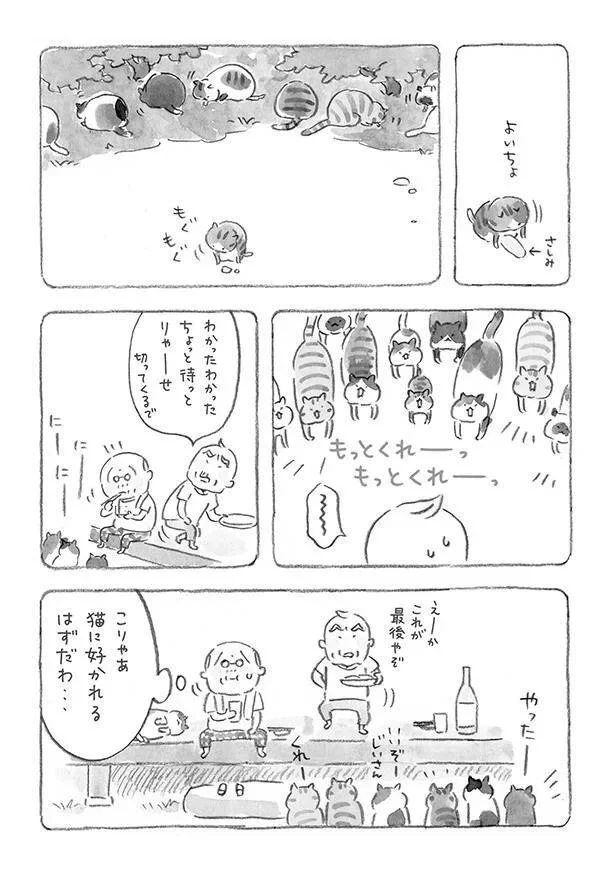 よいちょ
さしみ
もぐ
もぐ
もっとくれーーっ
もっとくれーーっ
わかったわかった
ちょっと待っと
りゃーせ
切ってくるで
にーに
にーに
えーか
これが
最後やぞ
やったー
いいぞ
じいさん
くれ
こりゃあ
猫に好かれる
はずだわ・・・